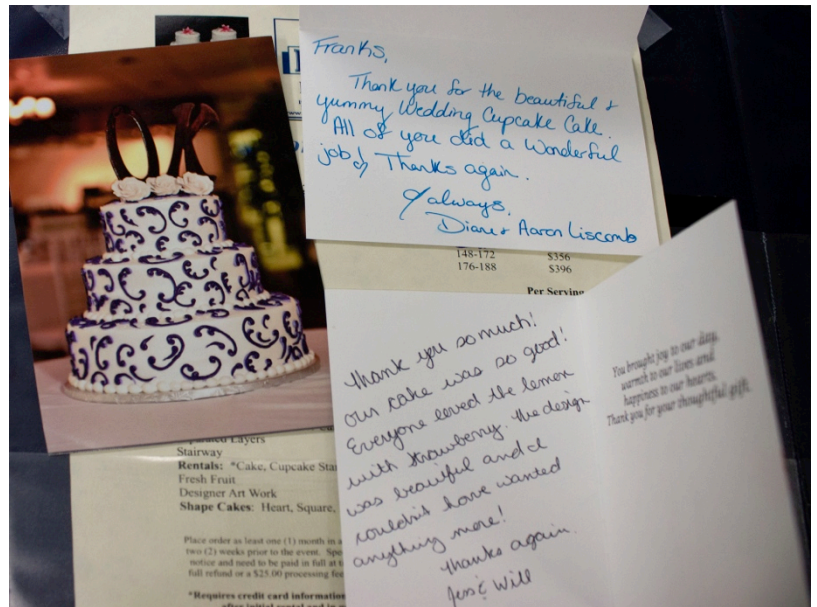 OK
Franks,
Thank you for the beautiful +
yummy Wedding Cupcake Cake.
All of you did a wonderful
job! Thanks again.
always,
Diane + Aaron Liscomb
148-172 $356
176-188 $396
Per Serving
Thank you so much!
our cake was so good!
Everyone loved the lemon
with strawberry. The design
was beautiful and I
couldn't have wanted
anything more!
Thanks again.
Jess & Will
You brought joy to our day,
warmth to our lives and
happiness to our hearts.
Thank you for your thoughtful gift.
Layers
Stairway
Rentals: *Cake, Cupcake
Fresh Fruit
Designer Art Work
Shape Cakes: Heart, Square,
Place order as least one (1) month in
two (2) weeks prior to the event.
notice and need to be paid in full at
full refund or a $25.00 processing fee
*Requires credit card
after initial rental and